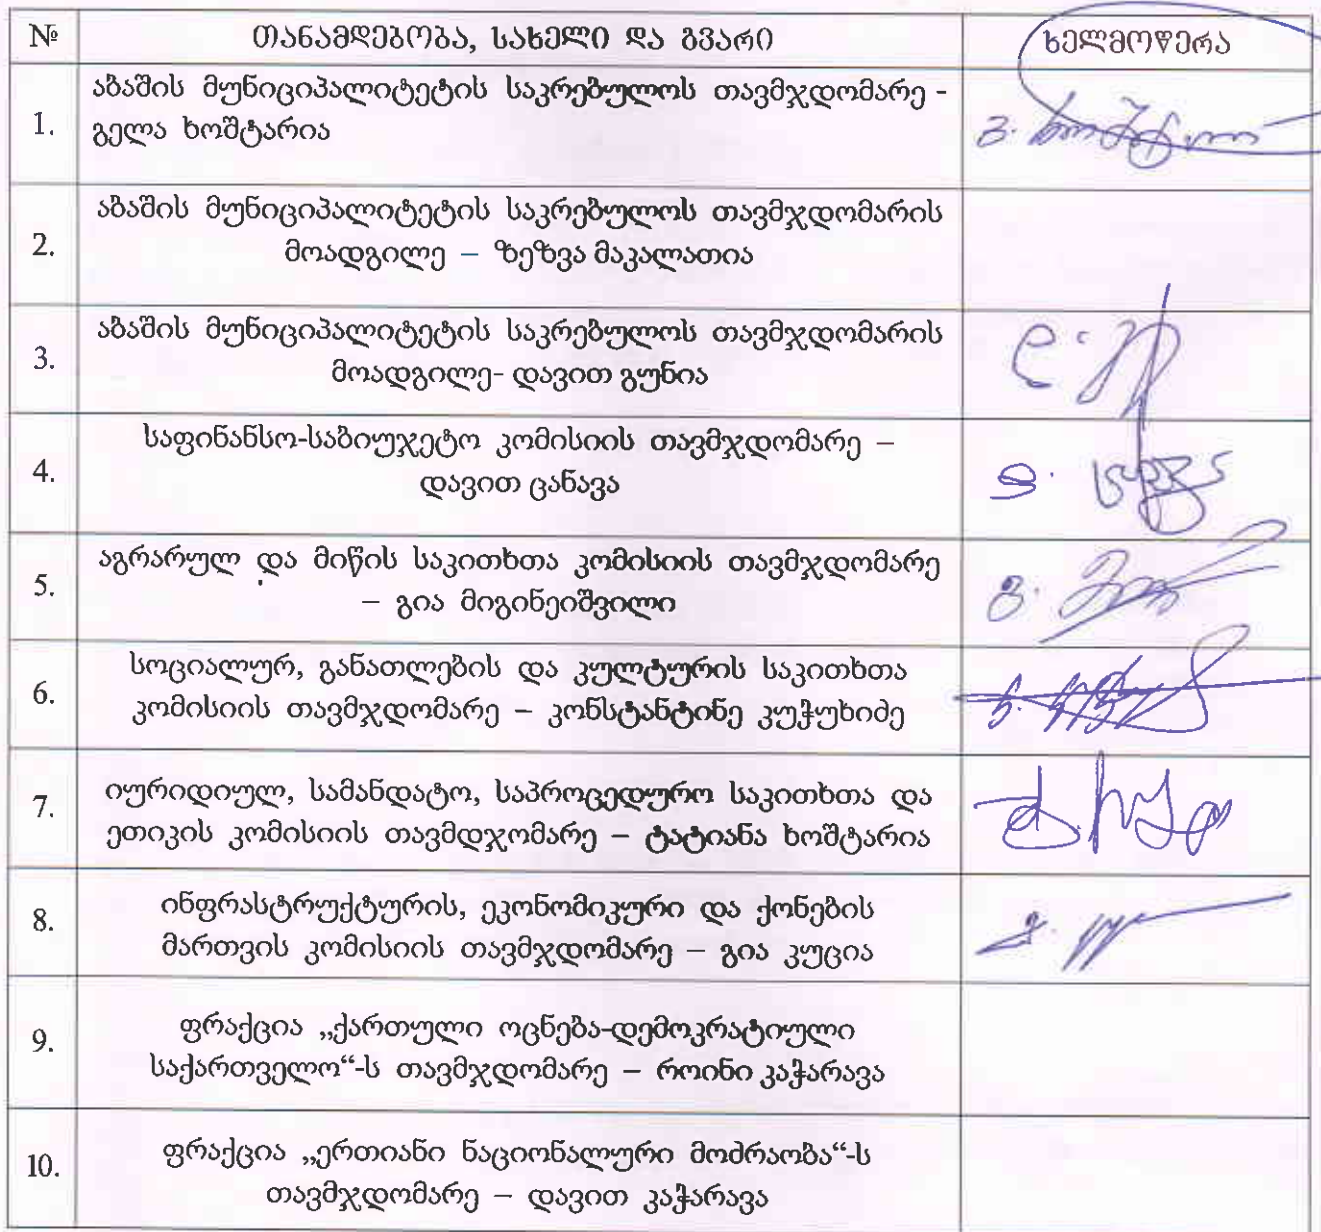 № თანამდებობა, სახელი და გვარი ხელმოწერა
1. აბაშის მუნიციპალიტეტის საკრებულოს თავმჯდომარე -
გელა ხოშტარია
2. აბაშის მუნიციპალიტეტის საკრებულოს თავმჯდომარის
მოადგილე – ზეზვა მაკალათია
3. აბაშის მუნიციპალიტეტის საკრებულოს თავმჯდომარის
მოადგილე- დავით გუნია
4. საფინანსო-საბიუჯეტო კომისიის თავმჯდომარე –
დავით ცანავა
5. აგრარულ და მიწის საკითხთა კომისიის თავმჯდომარე
– გია მიგინეიშვილი
6. სოციალურ, განათლების და კულტურის საკითხთა
კომისიის თავმჯდომარე – კონსტანტინე კუჭუხიძე
7. იურიდიულ, სამანდატო, საპროცედურო საკითხთა და
ეთიკის კომისიის თავმდჯომარე – ტატიანა ხოშტარია
8. ინფრასტრუქტურის, ეკონომიკური და ქონების
მართვის კომისიის თავმჯდომარე – გია კუცია
9. ფრაქცია „ქართული ოცნება-დემოკრატიული
საქართველო“-ს თავმჯდომარე – როინი კაჭარავა
10. ფრაქცია „ერთიანი ნაციონალური მოძრაობა“-ს
თავმჯდომარე – დავით კაჭარავა